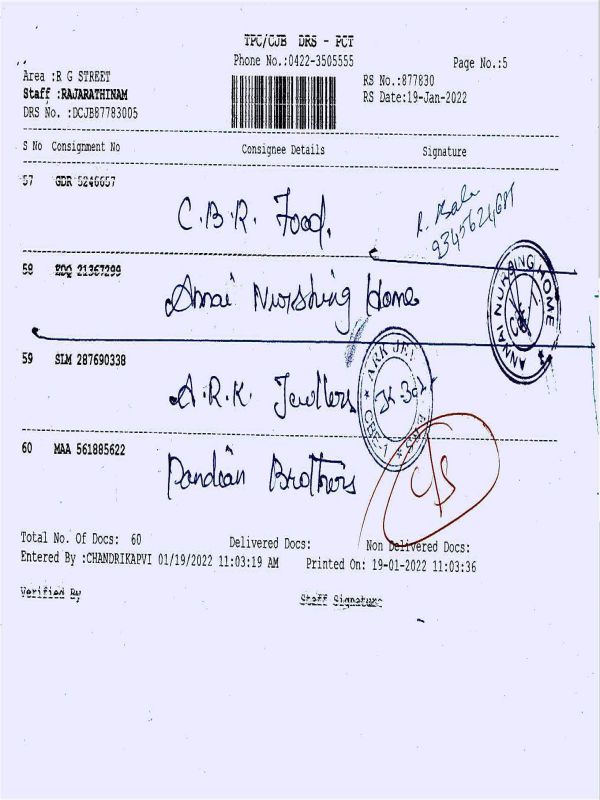 TPC/CJB DRS - PCT
Phone No.:0422-3505555
Page No.:5
Area :R G STREET
RS No.:877830
Staff :RAJARATHINAM
RS Date:19-Jan-2022
DRS No. :DCJB87783005
S No Consignment No Consignee Details Signature
57 GDR 5246657
C.B.R. Food.
R. Bala
58 EDQ 21367299
Annai Nurshing Home
ANNAI NURSING HOME
59 SLM 287690338
A.R.K. Jewllers
ARK JEW
60 MAA 561885622
Pandian Brothers
Total No. Of Docs: 60 Delivered Docs: Non Delivered Docs:
Entered By :CHANDRIKAPVI 01/19/2022 11:03:19 AM Printed On: 19-01-2022 11:03:36
Verified By Staff Signature